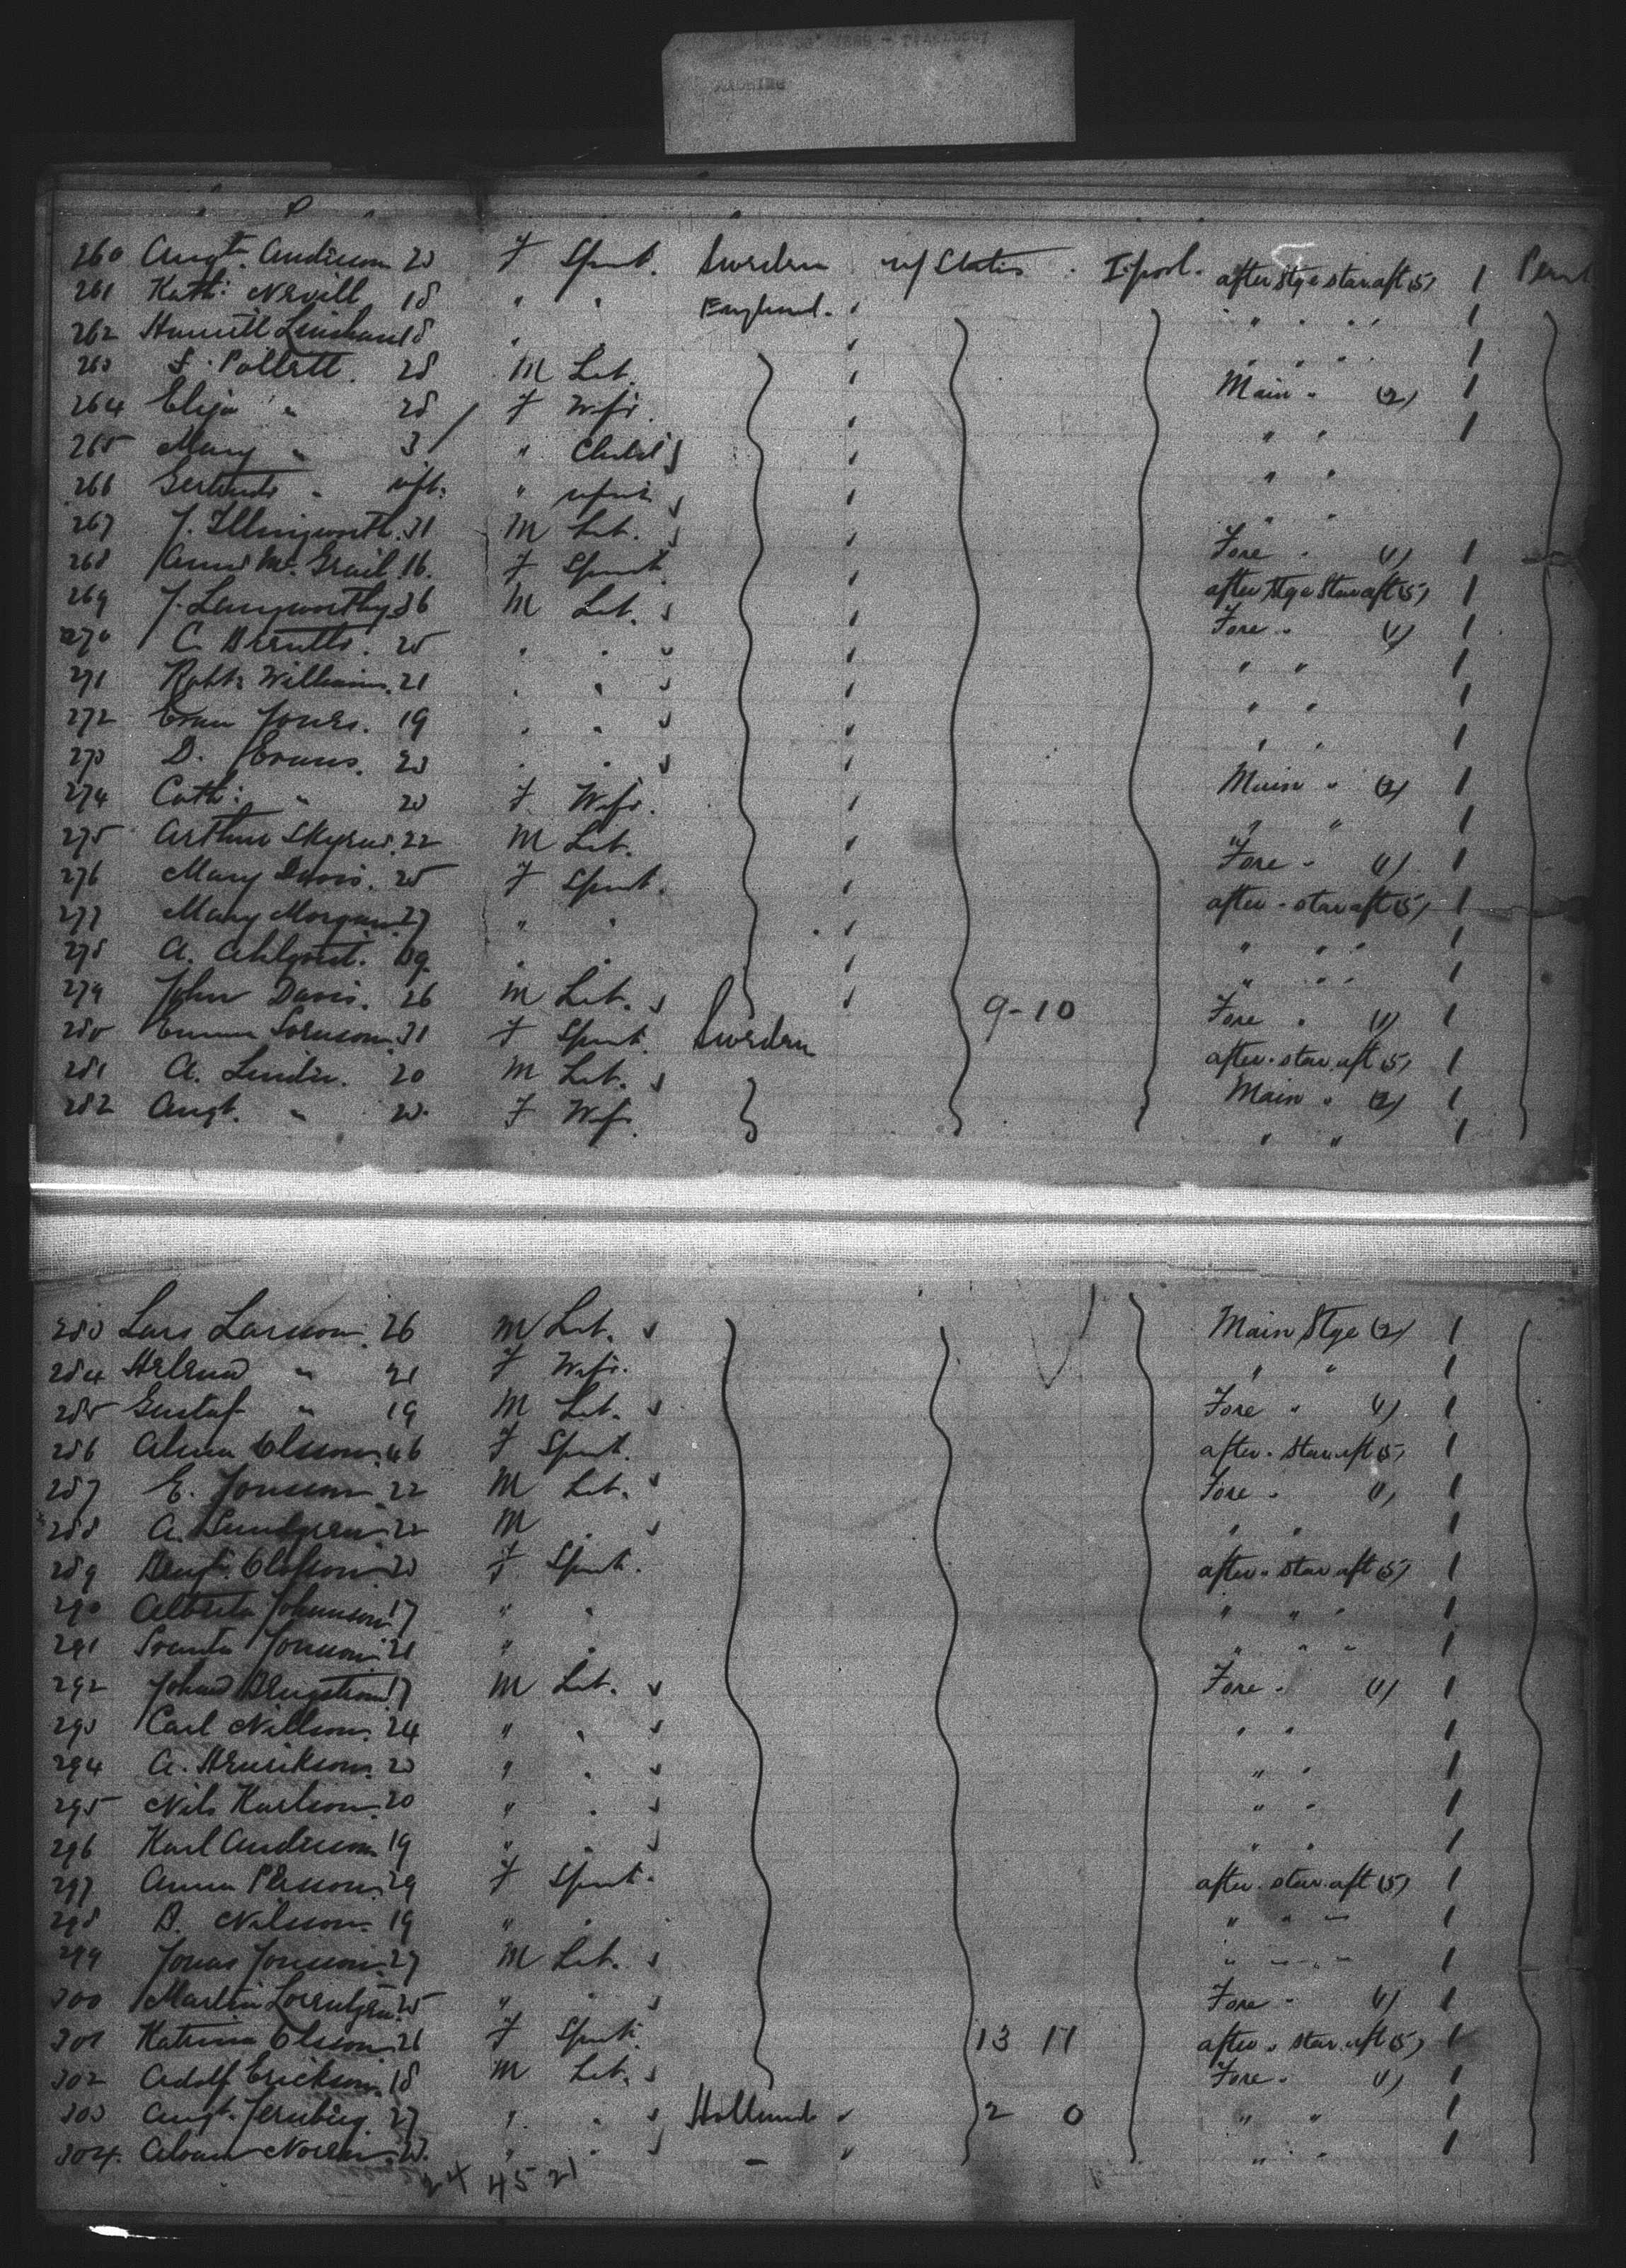 260 Augt. Andersson 20 F Spnst. Sweden U/States L'pool. after Stge star. aft (5) 1 Perm
261 Kath: Nevill 18 " " England. " " " " 1
262 18 " " " " " 1
263 F. Pollett. 28 M Lab. Main " (2) 1
264 Eliza " 28 F Wife. " " 1
265 Mary " 3 " Child " "
266 Gertrude " inft. " infant " "
267 J. Illingworth. 31 M Lab. Fore " (1) 1
268 Annie Mc. Grail. 16. F Spnst. after Stge Star aft (5) 1
269 J. Langworthy 36 M Lab. Fore " (1) 1
270 C. 25 " " " " 1
271 Robt. Williams. 21 " " " " 1
272 Evan Jones. 19 " " " " 1
273 D. Evans. 20 " " Main " (2) 1
274 Cath: " 20 F Wife. " " 1
275 Arthur Skyrus. 22 M Lab. Fore " (1) 1
276 Mary Davis. 25 F Spnst. after " star aft (5) 1
277 Mary Morgan. 27 " " " " " 1
278 A. Ahlqvist. 19. " " " " " 1
279 John Davis. 26 M Lab. 9-10 Fore " (1) 1
280 Emma 31 F Spnst. Sweden after " star. aft (5) 1
281 A. Linder. 20 M Lab. Main " (2) 1
282 Augt. " 20. F Wife. " " 1
283 Lars Larsson. 26 M Lab. Main Stge (2) 1
284 Helena " 21 F Wife. " " 1
285 Gustaf " 19 M Lab. Fore " (1) 1
286 Olsson. 46 F Spnst. after " Star. aft (5) 1
287 E. Jonsson 22 M Lab. Fore " (1) 1
288 A. Lundgren 22 M " " " 1
289 Bengt. Olofsson 20 F Spnst. after " star aft (5) 1
290 Alberta Johansson 17 " " " " " 1
291 Jonsson 21 " " " " " 1
292 Johan Bengtson 17 M Lab. Fore " (1) 1
293 Carl Nillson. 24 " " " " 1
294 A. Henrikson. 20 " " " " 1
295 Nils Karlson. 20 " " " " 1
296 Karl Andersson 19 " " " " 1
297 Anna Persson. 29 F Spnst. after " star. aft (5) 1
298 B. Nilsson. 19 " " " " " 1
299 Jonas Jonsson. 27 M Lab. " " " 1
300 Martin Lorentzen. 25 " " Fore " (1) 1
301 Katrina Olsson. 26 F Spnst. 13 11 after " star. aft (5) 1
302 Adolf Erickson. 18 M Lab. Fore " (1) 1
303 Augt. 27 " " Holland " 2 0 " " 1
304. 20. " " – " " " 1
24 45 21